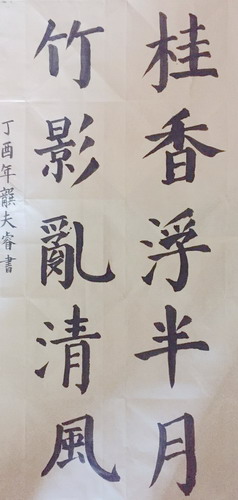 桂香浮半月
竹影亂清風
丁酉年龔夫睿書